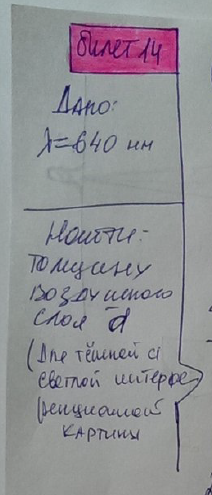 БИЛЕТ 14
ДАНО:
λ=640 нм
НАЙТИ:
толщину
воздушного
слоя d
(Для тёмной и
светлой интерфе-
ренционной
картины